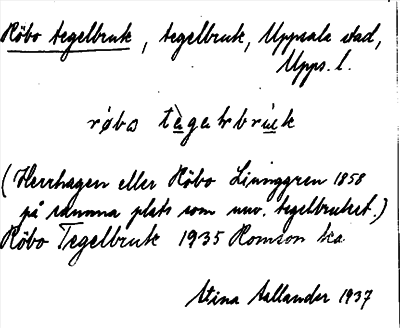 Röbo tegelbruk, tegelbruk, Uppsala stad,
Upps. l.
röbo tegelbruk
(Herrhagen eller Röbo Ljunggren 1858
på samma plats som nuv. tegelbruket.)
Röbo Tegelbruk 1935 Romson ka
Stina Sallander 1937